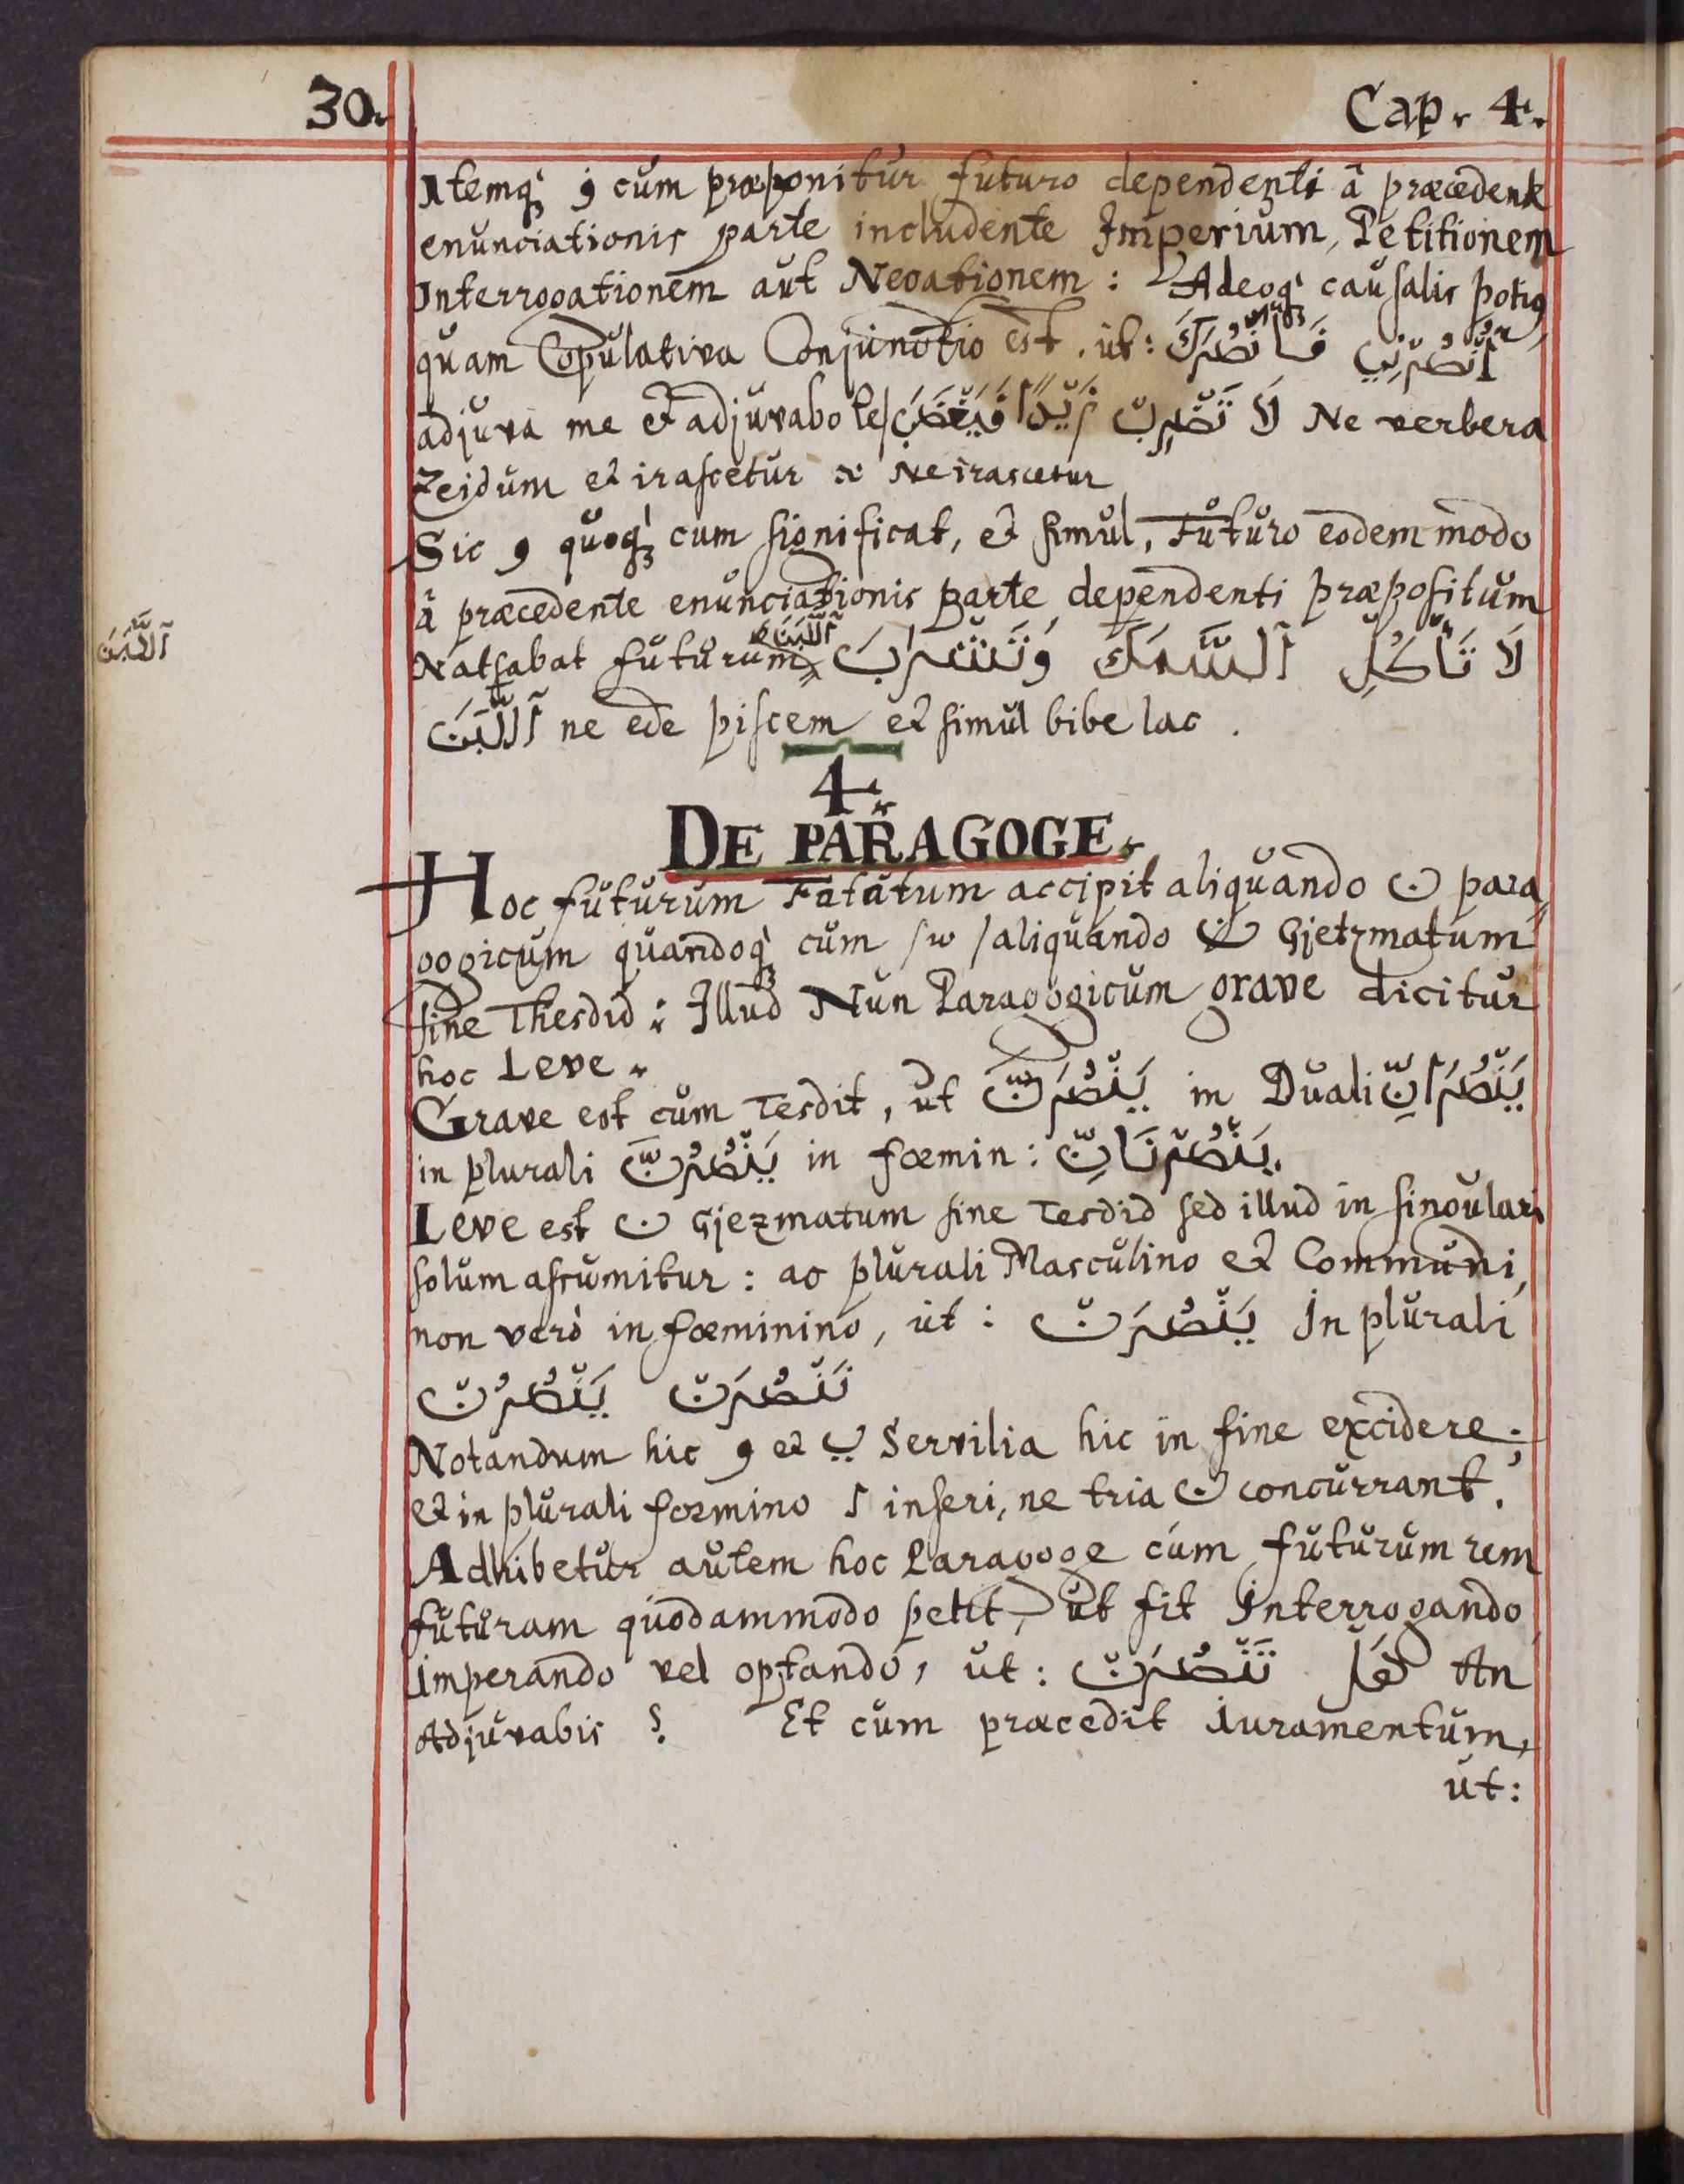 30.
Cap. 4.
Itemq3 و cum præponitur futuro dependenti â præcedente
enunciationis parte includente Imperium, Petitionem
Interrogationem aut Negationem: Adeoq3 causalis potiꝰ
quam Copulativa Conjunctio est, ut: اُنْصُرْنِي فَاَنْصُرَكَ
adjuva me et adjuvabo te/ لَا تَضْرِبْ زَيْدًا فَيَغْضَبَ Ne verbera
Zeidum et irascetur Ne irascetur
Sic و quoq3 cum significat, et simul, Futuro eodem modo
â præcedente enunciationis parte dependenti præpositum
Natsabat futurum لَا تَأْكُلِ آلسَّمَكَ وَتَشْرَبَ آللَّبَنَ
آللَّبَنَ
آللَّبَنَ ne ede piscem et simul bibe lac.
4.
DE PARAGOGE.
Hoc futurum Fatatum accipit aliquando ن para
gogicum quandoq3 cum / ّ / aliquando ن Gjetzmatum
sine Thesdid: Illud Nun Paragogicum grave dicitur
hoc Leve.
Grave est cum Tesdit, ut يَنْصُرَنَّ in Duali يَنْصُرَانِّ
in plurali يَنْصُرُنَّ in fœmin: يَنْصُرْنَانِّ
Leve est ن Gjezmatum sine Tesdid sed illud in singulari
solum assumitur: ac plurali Masculino et Communi,
non verò in fœminino, ut: يَنْصُرَنْ In plurali
نَنْصُرَنْ يَنْصُرُنْ
Notandum hic و et ي Servilia hic in fine excidere;
et in plurali fœmino ا inseri, ne tria ن concurrant.
Adhibetur autem hoc Paragoge cum futurum rem
futuram quodammodo petit, ut fit Interrogando
Imperando vel optando, ut: هَلْ تَنْصُرَنْ An
Adjuvabis? Et cum præcedit iuramentum,
ut: